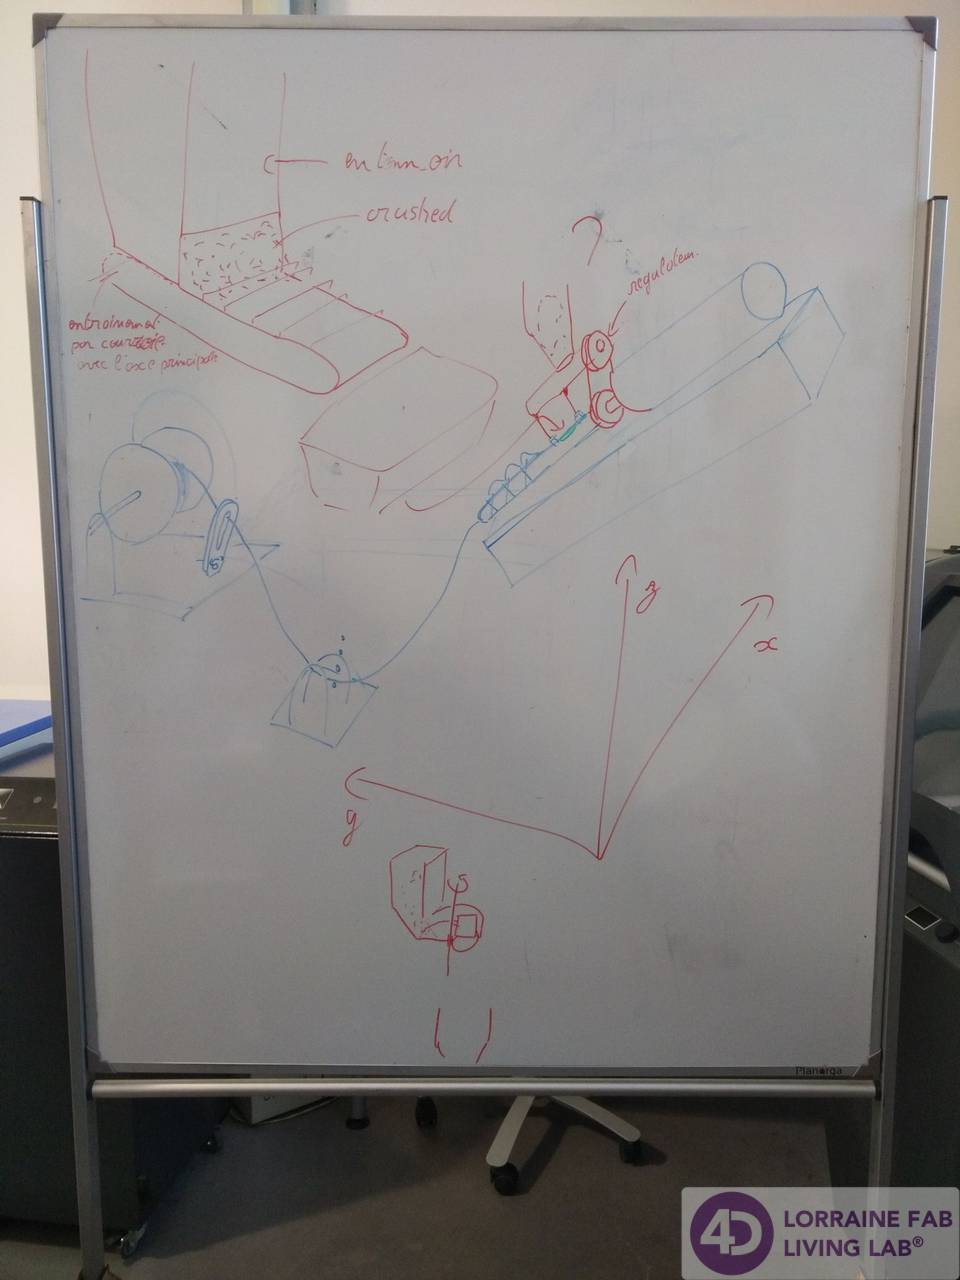 entonnoir
crushed
?
entrainement
par courroie
avec l'axe principale
z
x
y
Planorga
4D
LORRAINE FAB
LIVING LAB®